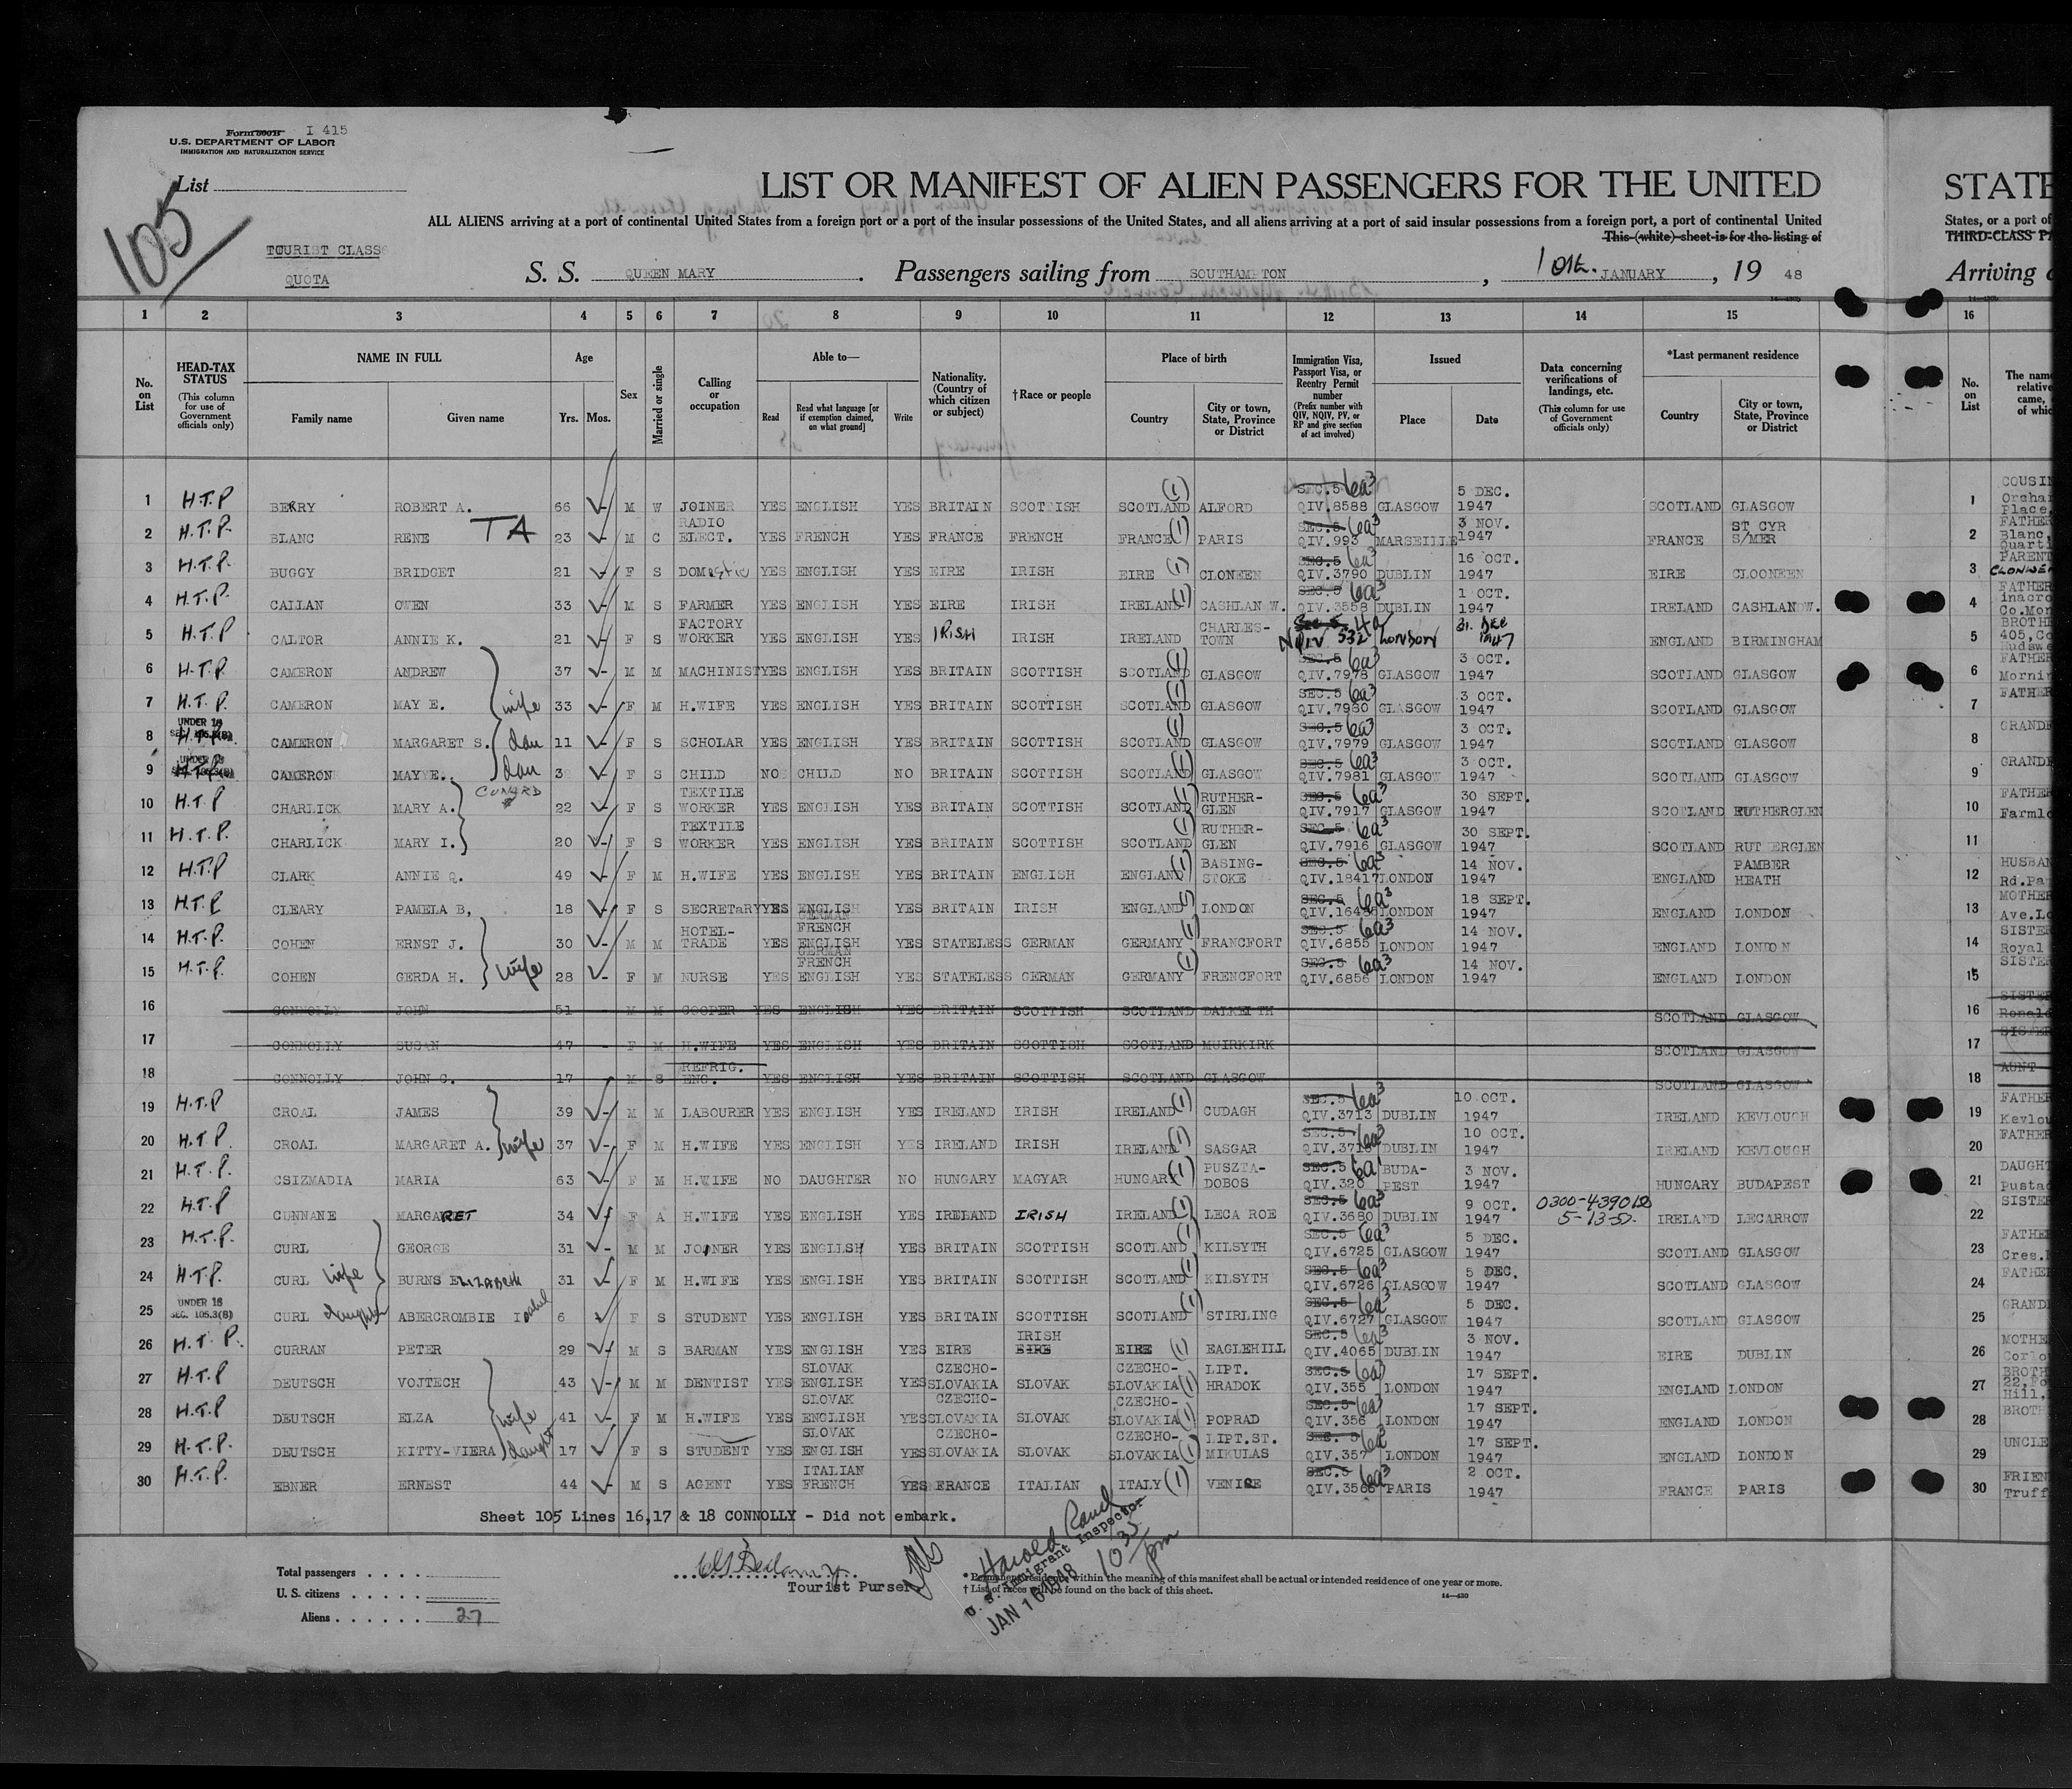 Form 500B I 415
U.S. DEPARTMENT OF LABOR
IMMIGRATION AND NATURALIZATION SERVICE
List
105
LIST OR MANIFEST OF ALIEN PASSENGERS FOR THE UNITED STATE
ALL ALIENS arriving at a port of continental United States from a foreign port or a port of the insular possessions of the United States, and all aliens arriving at a port of said insular possessions from a foreign port, a port of continental United States, or a port of
This (white) sheet is for the listing of THIRD-CLASS PA
TOURIST CLASS
QUOTA
S. S. QUEEN MARY. Passengers sailing from SOUTHAMPTON, 10th. JANUARY, 19 48 Arriving
1 2 3 4 5 6 7 8 9 10 11 12 13 14 15 16
No. on List
HEAD-TAX STATUS (This column for use of Government officials only)
NAME IN FULL Family name Given name
Age Yrs. Mos.
Sex
Married or single
Calling or occupation
Able to— Read Read what language [or if exemption claimed, on what ground] Write
Nationality. (Country of which citizen or subject)
†Race or people
Place of birth Country City or town, State, Province or District
Immigration Visa, Passport Visa, or Reentry Permit number (Prefix number with QIV, NQIV, PV, or RP and give section of act involved)
Issued Place Date
Data concerning verifications of landings, etc. (This column for use of Government officials only)
*Last permanent residence Country City or town, State, Province or District
No. on List
The nam relative came, of whic
1 H.T.P BERRY ROBERT A. 66 M W JOINER YES ENGLISH YES BRITAIN SCOTTISH SCOTLAND (1) ALFORD SEC.5 6a3 QIV.8588 GLASGOW 5 DEC. 1947 SCOTLAND GLASGOW 1 COUSIN Orchar Place,
2 H.T.P. BLANC RENE TA 23 M C RADIO ELECT. YES FRENCH YES FRANCE FRENCH FRANCE (1) PARIS SEC.5 6a3 QIV.993 MARSEILLE 3 NOV. 1947 FRANCE ST CYR S/MER 2 FATHER Blanc, Quarti
3 H.T.P. BUGGY BRIDGET 21 F S DOMESTIC YES ENGLISH YES EIRE IRISH EIRE (1) CLONEEN SEC.5 6a3 QIV.3790 DUBLIN 16 OCT. 1947 EIRE CLOONEEN 3 PARENT CLONNE
4 H.T.P. CALLAN OWEN 33 M S FARMER YES ENGLISH YES EIRE IRISH IRELAND (1) CASHLAN W. SEC.5 6a3 QIV.3558 DUBLIN 1 OCT. 1947 IRELAND CASHLANDW. 4 FATHER inacro Co.Mon
5 H.T.P CALTOR ANNIE K. 21 F S FACTORY WORKER YES ENGLISH YES IRISH IRISH IRELAND CHARLES-TOWN SEC 5 4a NQIV 532 LONDON 31. DEC 1947 ENGLAND BIRMINGHAM 5 BROTHE 405, Co Hudswe
6 H.T.P CAMERON ANDREW 37 M M MACHINIST YES ENGLISH YES BRITAIN SCOTTISH SCOTLAND (1) GLASGOW SEC.5 6a3 QIV.7978 GLASGOW 3 OCT. 1947 SCOTLAND GLASGOW 6 FATHER Mornin
7 H.T.P. CAMERON MAY E. wife 33 F M H.WIFE YES ENGLISH YES BRITAIN SCOTTISH SCOTLAND (1) GLASGOW SEC.5 6a3 QIV.7980 GLASGOW 3 OCT. 1947 SCOTLAND GLASGOW 7 FATHER
8 UNDER 16 SEC. 105.3(S) H.T.P. CAMERON MARGARET S. dau 11 F S SCHOLAR YES ENGLISH YES BRITAIN SCOTTISH SCOTLAND (1) GLASGOW SEC.5 6a3 QIV.7979 GLASGOW 3 OCT. 1947 SCOTLAND GLASGOW 8 GRANDF
9 UNDER 16 SEC. 105.3(S) H.T.P CAMERON MAY E. dau 3 F S CHILD NO CHILD NO BRITAIN SCOTTISH SCOTLAND (1) GLASGOW SEC.5 6a3 QIV.7981 GLASGOW 3 OCT. 1947 SCOTLAND GLASGOW 9 GRANDF
CUNARD
10 H.T.P CHARLICK MARY A. 22 F S TEXTILE WORKER YES ENGLISH YES BRITAIN SCOTTISH SCOTLAND (1) RUTHER-GLEN SEC.5 6a3 QIV.7917 GLASGOW 30 SEPT. 1947 SCOTLAND RUTHERGLEN 10 FATHER Farmlo
11 H.T.P. CHARLICK MARY I. 20 F S TEXTILE WORKER YES ENGLISH YES BRITAIN SCOTTISH SCOTLAND (1) RUTHER-GLEN SEC.5 6a3 QIV.7916 GLASGOW 30 SEPT. 1947 SCOTLAND RUTHERGLEN 11
12 H.T.P CLARK ANNIE Q. 49 F M H.WIFE YES ENGLISH YES BRITAIN ENGLISH ENGLAND (1) BASING-STOKE SEC.5 6a3 QIV.18417 LONDON 14 NOV. 1947 ENGLAND PAMBER HEATH 12 HUSBAN Rd.Pa
13 H.T.P CLEARY PAMELA B, 18 F S SECRETaRY YES ENGLISH YES BRITAIN IRISH ENGLAND LONDON SEC.5 6a3 LONDON 18 SEPT. 1947 ENGLAND LONDON 13 MOTHER Ave.Lo
14 H.T.P. COHEN ERNST J. 30 M M HOTEL-TRADE YES GERMAN FRENCH ENGLISH YES STATELESS GERMAN GERMANY (1) FRANCFORT SEC.5 6a3 QIV.6855 LONDON 14 NOV. 1947 ENGLAND LONDON 14 SISTER Royal
15 H.T.P. COHEN GERDA H. wife 28 F M NURSE YES GERMAN FRENCH ENGLISH YES STATELESS GERMAN GERMANY (1) FRENCFORT SEC.5 6a3 QIV.6856 LONDON 14 NOV. 1947 ENGLAND LONDON 15 SISTER
16 CONNOLLY JOHN 51 M M COOPER YES ENGLISH YES BRITAIN SCOTTISH SCOTLAND DALKEITH SCOTLAND GLASGOW 16 SISTER Ronald
17 CONNOLLY SUSAN 47 F M H.WIFE YES ENGLISH YES BRITAIN SCOTTISH SCOTLAND MUIRKIRK SCOTLAND GLASGOW 17 SISTER
18 CONNOLLY JOHN C. 17 M S REFRIG. ENG. YES ENGLISH YES BRITAIN SCOTTISH SCOTLAND GLASGOW SCOTLAND GLASGOW 18 AUNT
19 H.T.P CROAL JAMES 39 M M LABOURER YES ENGLISH YES IRELAND IRISH IRELAND (1) CUDAGH SEC.5 6a3 QIV.3713 DUBLIN 10 OCT. 1947 IRELAND KEVLOUGH 19 FATHER Kevlou
20 H.T.P. CROAL MARGARET A. wife 37 F M H.WIFE YES ENGLISH YES IRELAND IRISH IRELAND (1) SASGAR SEC.5 6a3 DUBLIN 10 OCT. 1947 IRELAND KEVLOUGH 20 FATHER
21 H.T.P. CSIZMADIA MARIA 63 F M H.WIFE NO DAUGHTER NO HUNGARY MAGYAR HUNGARY (1) PUSZTA-DOBOS SEC.5 6a1 QIV.328 BUDA-PEST 3 NOV. 1947 HUNGARY BUDAPEST 21 DAUGHT Pustad
22 H.T.P CUNNANE MARGARET 34 F A H.WIFE YES ENGLISH YES IRELAND IRISH IRELAND (1) LECA ROE SEC.5 6a3 QIV.3680 DUBLIN 9 OCT. 1947 5-13-50. IRELAND LECARROW 22 SISTER
23 H.T.P. CURL GEORGE 31 M M JOINER YES ENGLISH YES BRITAIN SCOTTISH SCOTLAND (1) KILSYTH SEC.5 6a3 QIV.6725 GLASGOW 5 DEC. 1947 SCOTLAND GLASGOW 23 FATHER Cres.
24 H.T.P. CURL wife BURNS ELIZABETH 31 F M H.WIFE YES ENGLISH YES BRITAIN SCOTTISH SCOTLAND (1) KILSYTH SEC.5 6a3 QIV.6726 GLASGOW 5 DEC. 1947 SCOTLAND GLASGOW 24 FATHER
25 UNDER 16 SEC. 105.3(S) CURL daughter ABERCROMBIE Isabel 6 F S STUDENT YES ENGLISH YES BRITAIN SCOTTISH SCOTLAND (1) STIRLING SEC.5 6a3 QIV.6727 GLASGOW 5 DEC. 1947 SCOTLAND GLASGOW 25 GRANDF
26 H.T.P. CURRAN PETER 29 M S BARMAN YES ENGLISH YES EIRE IRISH EIRE EIRE (1) EAGLEHILL SEC.5 6a3 QIV.4065 DUBLIN 3 NOV. 1947 EIRE DUBLIN 26 MOTHE Corlo
27 H.T.P DEUTSCH VOJTECH 43 M M DENTIST YES SLOVAK ENGLISH YES CZECHO-SLOVAKIA SLOVAK CZECHO-SLOVAKIA (1) LIPT. HRADOK SEC.5 6a3 QIV.355 LONDON 17 SEPT. 1947 ENGLAND LONDON 27 BROTH 22, Fo Hill,
28 H.T.P DEUTSCH ELZA wife 41 F M H.WIFE YES SLOVAK ENGLISH YES CZECHO-SLOVAKIA SLOVAK CZECHO-SLOVAKIA (1) POPRAD SEC.5 6a3 QIV.356 LONDON 17 SEPT. 1947 ENGLAND LONDON 28 BROTH
29 H.T.P. DEUTSCH KITTY-VIERA daught 17 F S STUDENT YES SLOVAK ENGLISH YES CZECHO-SLOVAKIA SLOVAK CZECHO-SLOVAKIA (1) LIPT.ST. MIKULAS SEC. 5 6a3 QIV.357 LONDON 17 SEPT. 1947 ENGLAND LONDON 29 UNCLE
30 H.T.P. EBNER ERNEST 44 M S AGENT YES ITALIAN FRENCH YES FRANCE ITALIAN ITALY (1) VENICE SEC.5 6a3 PARIS 2 OCT. 1947 FRANCE PARIS 30 FRIEN Truff
Sheet 105 Lines 16,17 & 18 CONNOLLY - Did not embark.
Total passengers
U. S. citizens
Aliens 27
Tourist Purser
Harold
U. S. Immigrant Inspector
JAN 16 1948
10 35 pm
* Permanent residence within the meaning of this manifest shall be actual or intended residence of one year or more.
† List of races will be found on the back of this sheet.
14—430